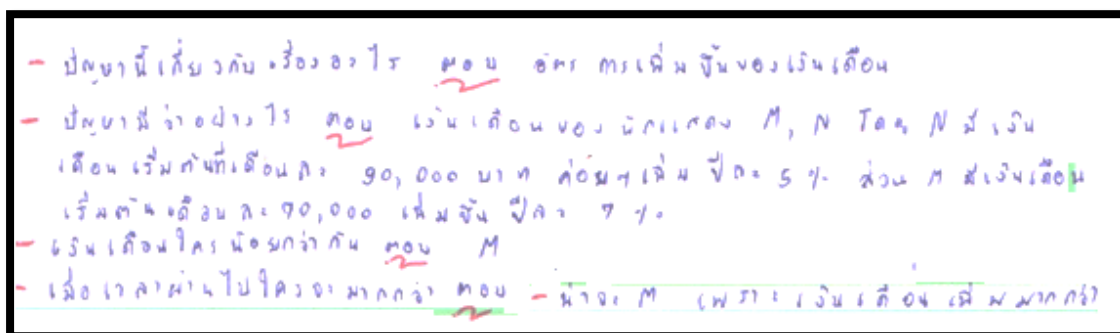 - ปัญหานี้เกี่ยวกับเรื่องอะไร ตอบ อัตราการเพิ่มขึ้นของเงินเดือน
- ปัญหามีว่าอย่างไร ตอบ เงินเดือนของนักแสดง M, N โดย N มีเงิน
เดือนเริ่มต้นที่เดือนละ 90,000 บาท ค่อยๆเพิ่ม ปีละ 5 % ส่วน M มีเงินเดือน
เริ่มต้นเดือนละ 70,000 เพิ่มขึ้น ปีละ 7 %
- เงินเดือนใครน้อยกว่ากัน ตอบ M
- เมื่อเวลาผ่านไปใครจะมากกว่า ตอบ - น่าจะ M เพราะ เงินเดือนเพิ่มมากกว่า